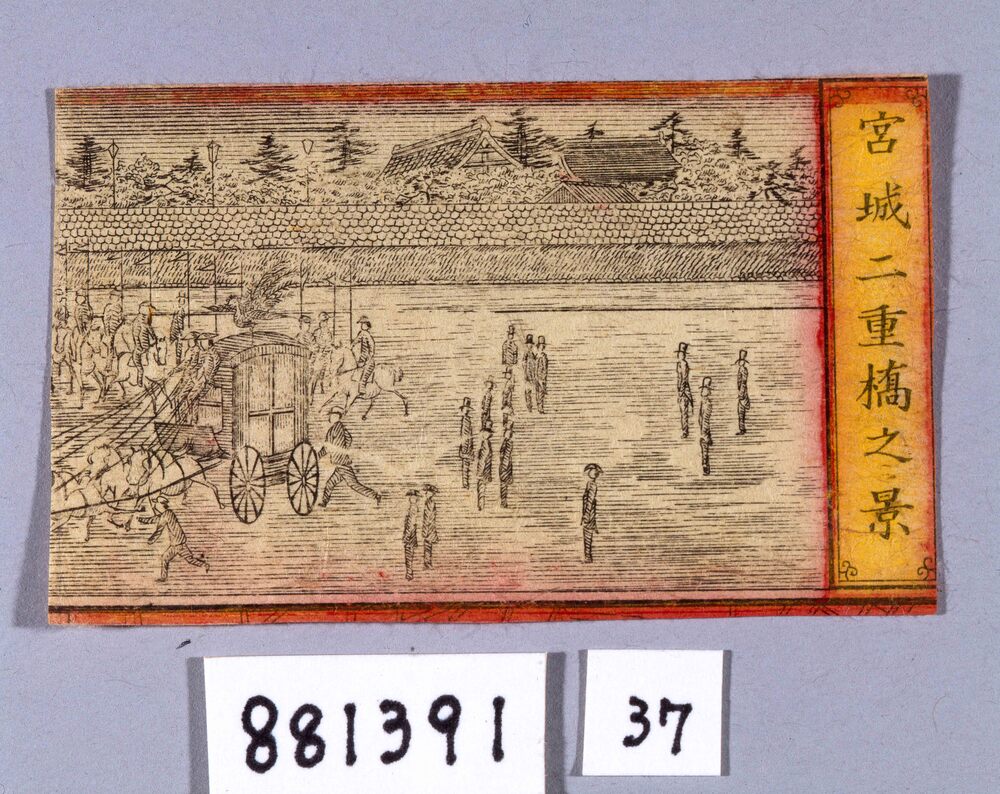 宮城二重橋之景
881391
37